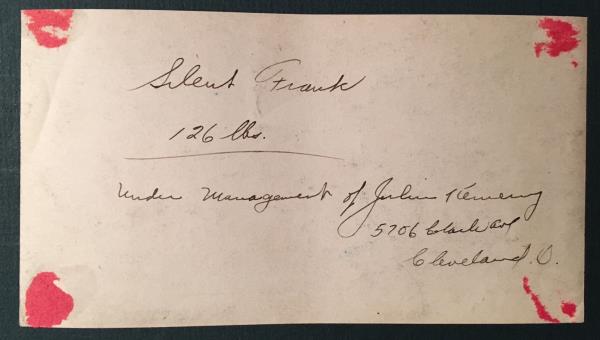 Silent Frank
126 lbs.
Under Management of Julius Kemeny
5706 Clark Ave
Cleveland. O.